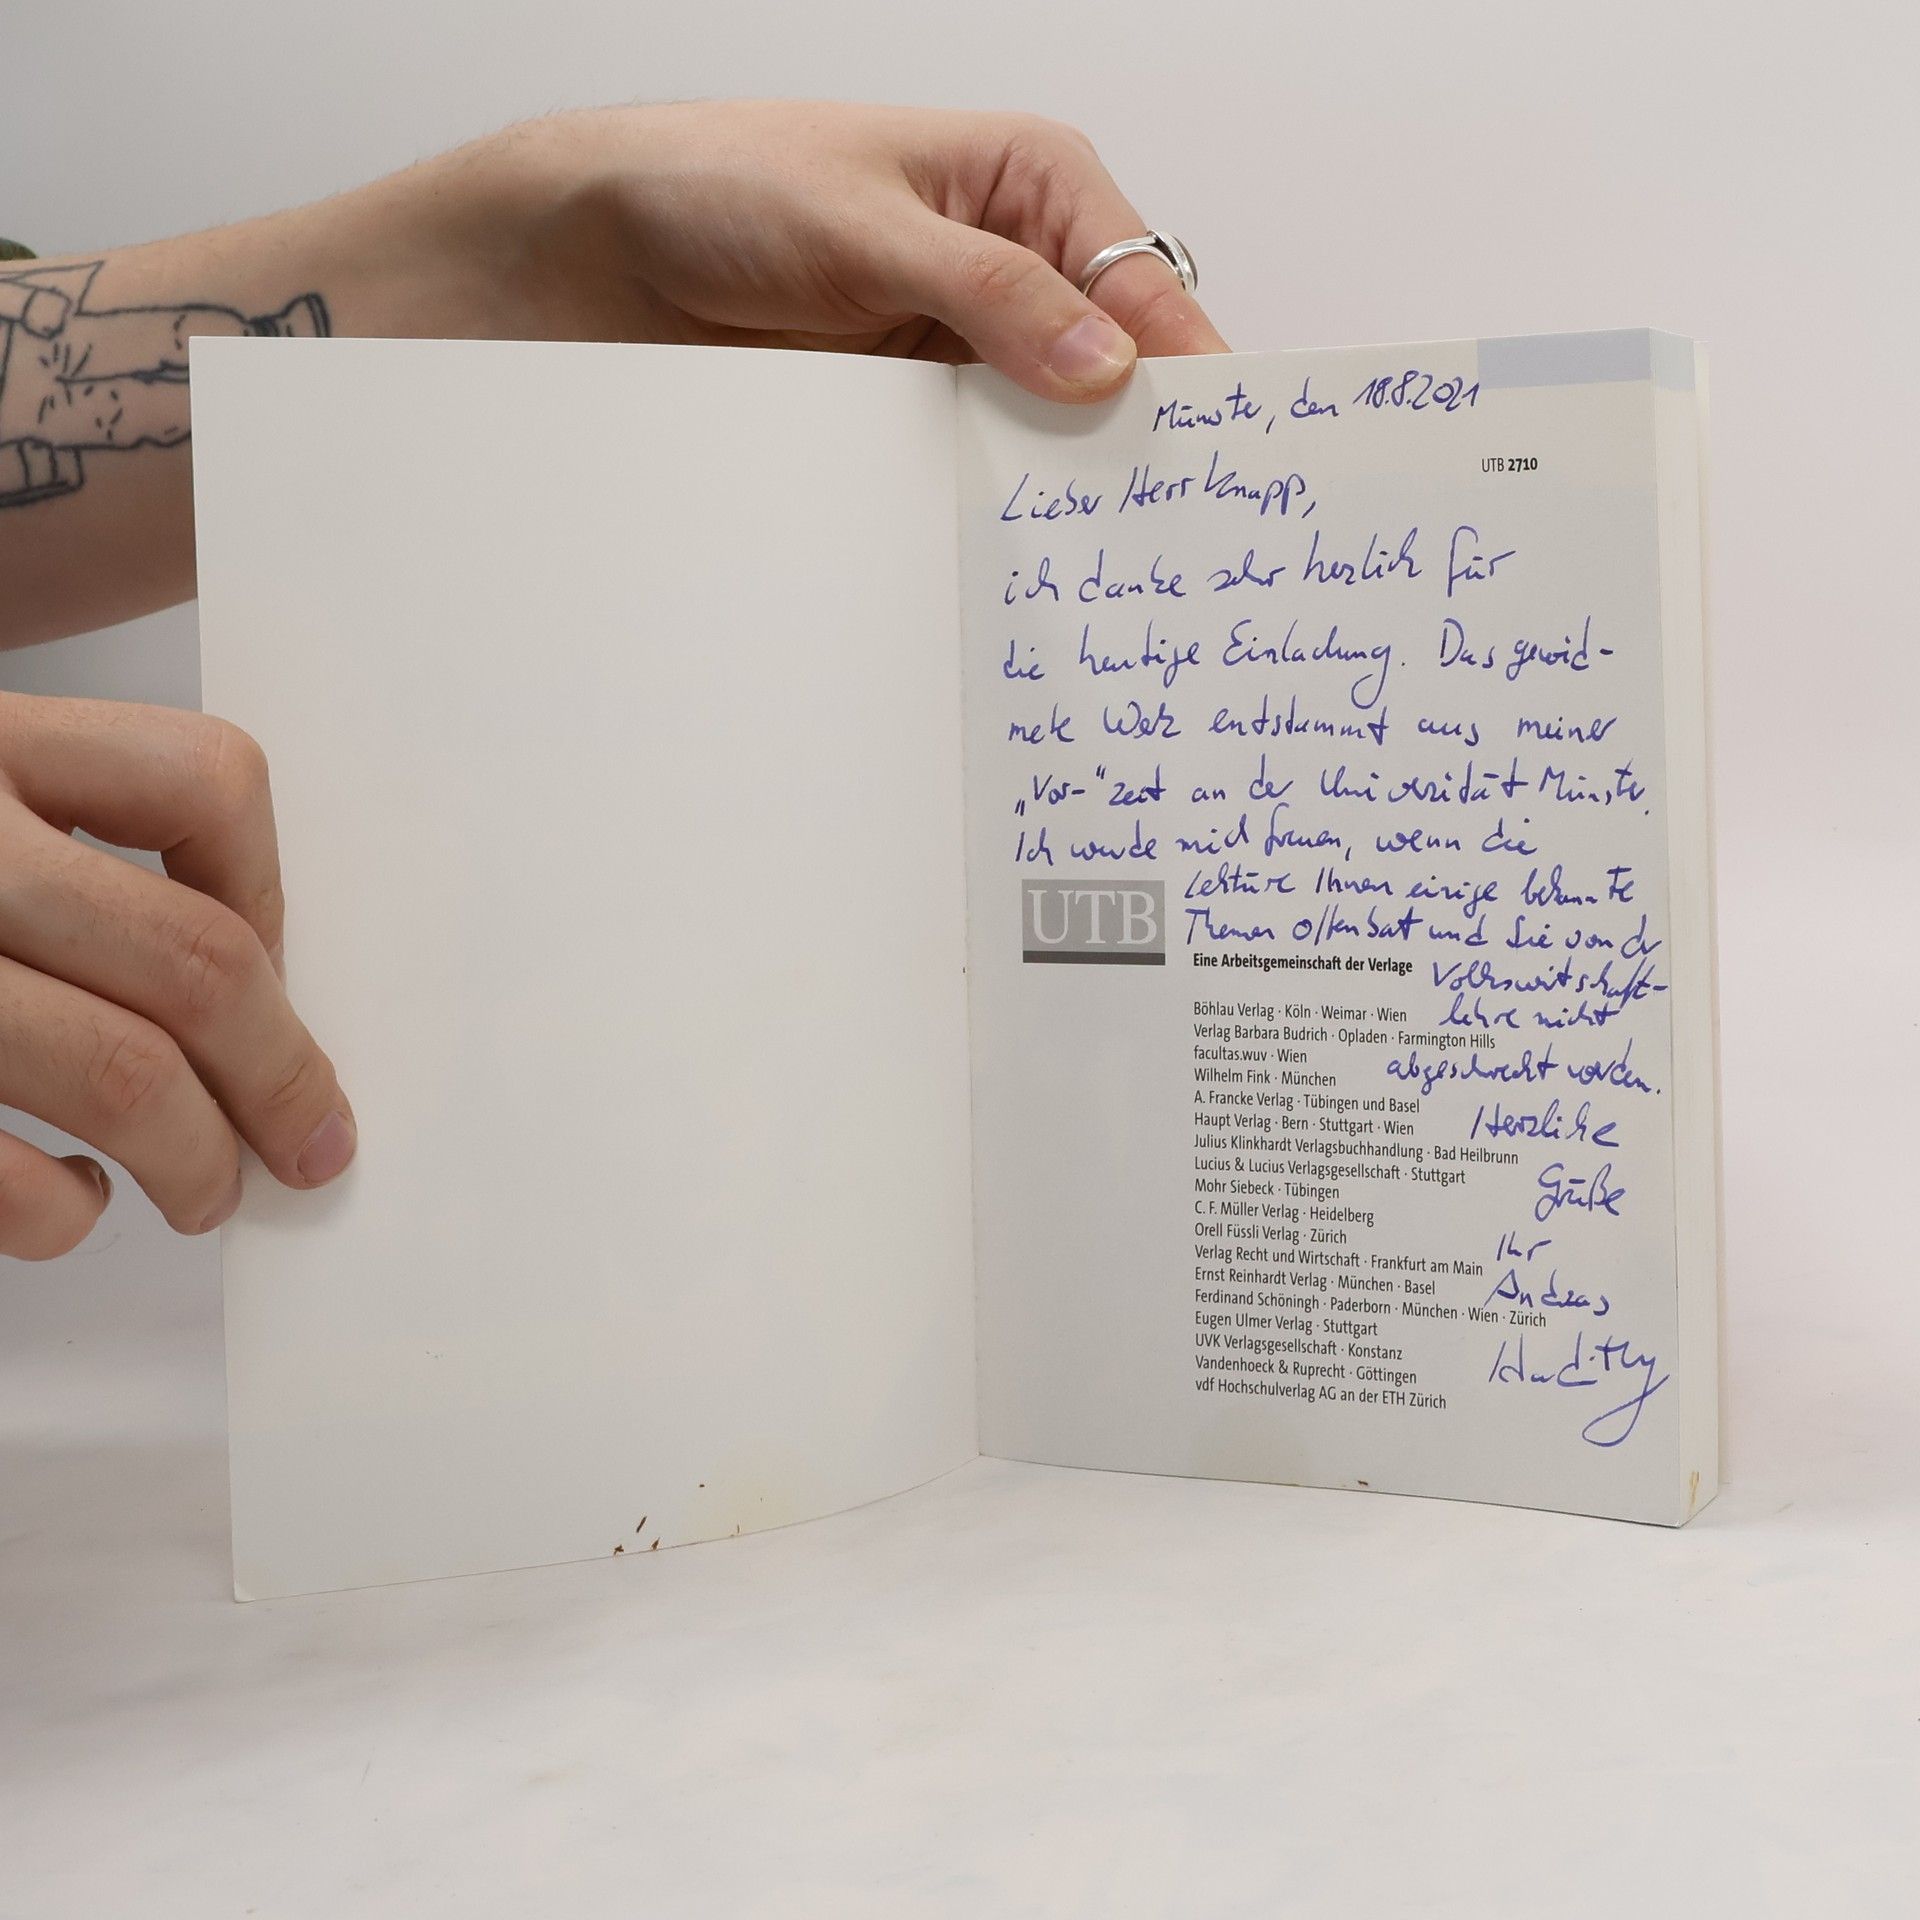 Münster, den 18.8.2021
UTB 2710
Lieber Herr Knapp,
ich danke sehr herzlich für
die heutige Einladung. Das gewid-
mete Werk entstammt aus meiner
„Vor-“zeit an der Universität Münster.
Ich würde mich freuen, wenn die
Lektüre Ihnen einige bekannte
Themen offenbart und Sie von der
Volkswirtschaft-
lehre nicht
abgeschreckt werden.
Herzliche
Grüße
Ihr
Andreas
UTB
Eine Arbeitsgemeinschaft der Verlage
Böhlau Verlag · Köln · Weimar · Wien
Verlag Barbara Budrich · Opladen · Farmington Hills
facultas.wuv · Wien
Wilhelm Fink · München
A. Francke Verlag · Tübingen und Basel
Haupt Verlag · Bern · Stuttgart · Wien
Julius Klinkhardt Verlagsbuchhandlung · Bad Heilbrunn
Lucius & Lucius Verlagsgesellschaft · Stuttgart
Mohr Siebeck · Tübingen
C. F. Müller Verlag · Heidelberg
Orell Füssli Verlag · Zürich
Verlag Recht und Wirtschaft · Frankfurt am Main
Ernst Reinhardt Verlag · München · Basel
Ferdinand Schöningh · Paderborn · München · Wien · Zürich
Eugen Ulmer Verlag · Stuttgart
UVK Verlagsgesellschaft · Konstanz
Vandenhoeck & Ruprecht · Göttingen
vdf Hochschulverlag AG an der ETH Zürich